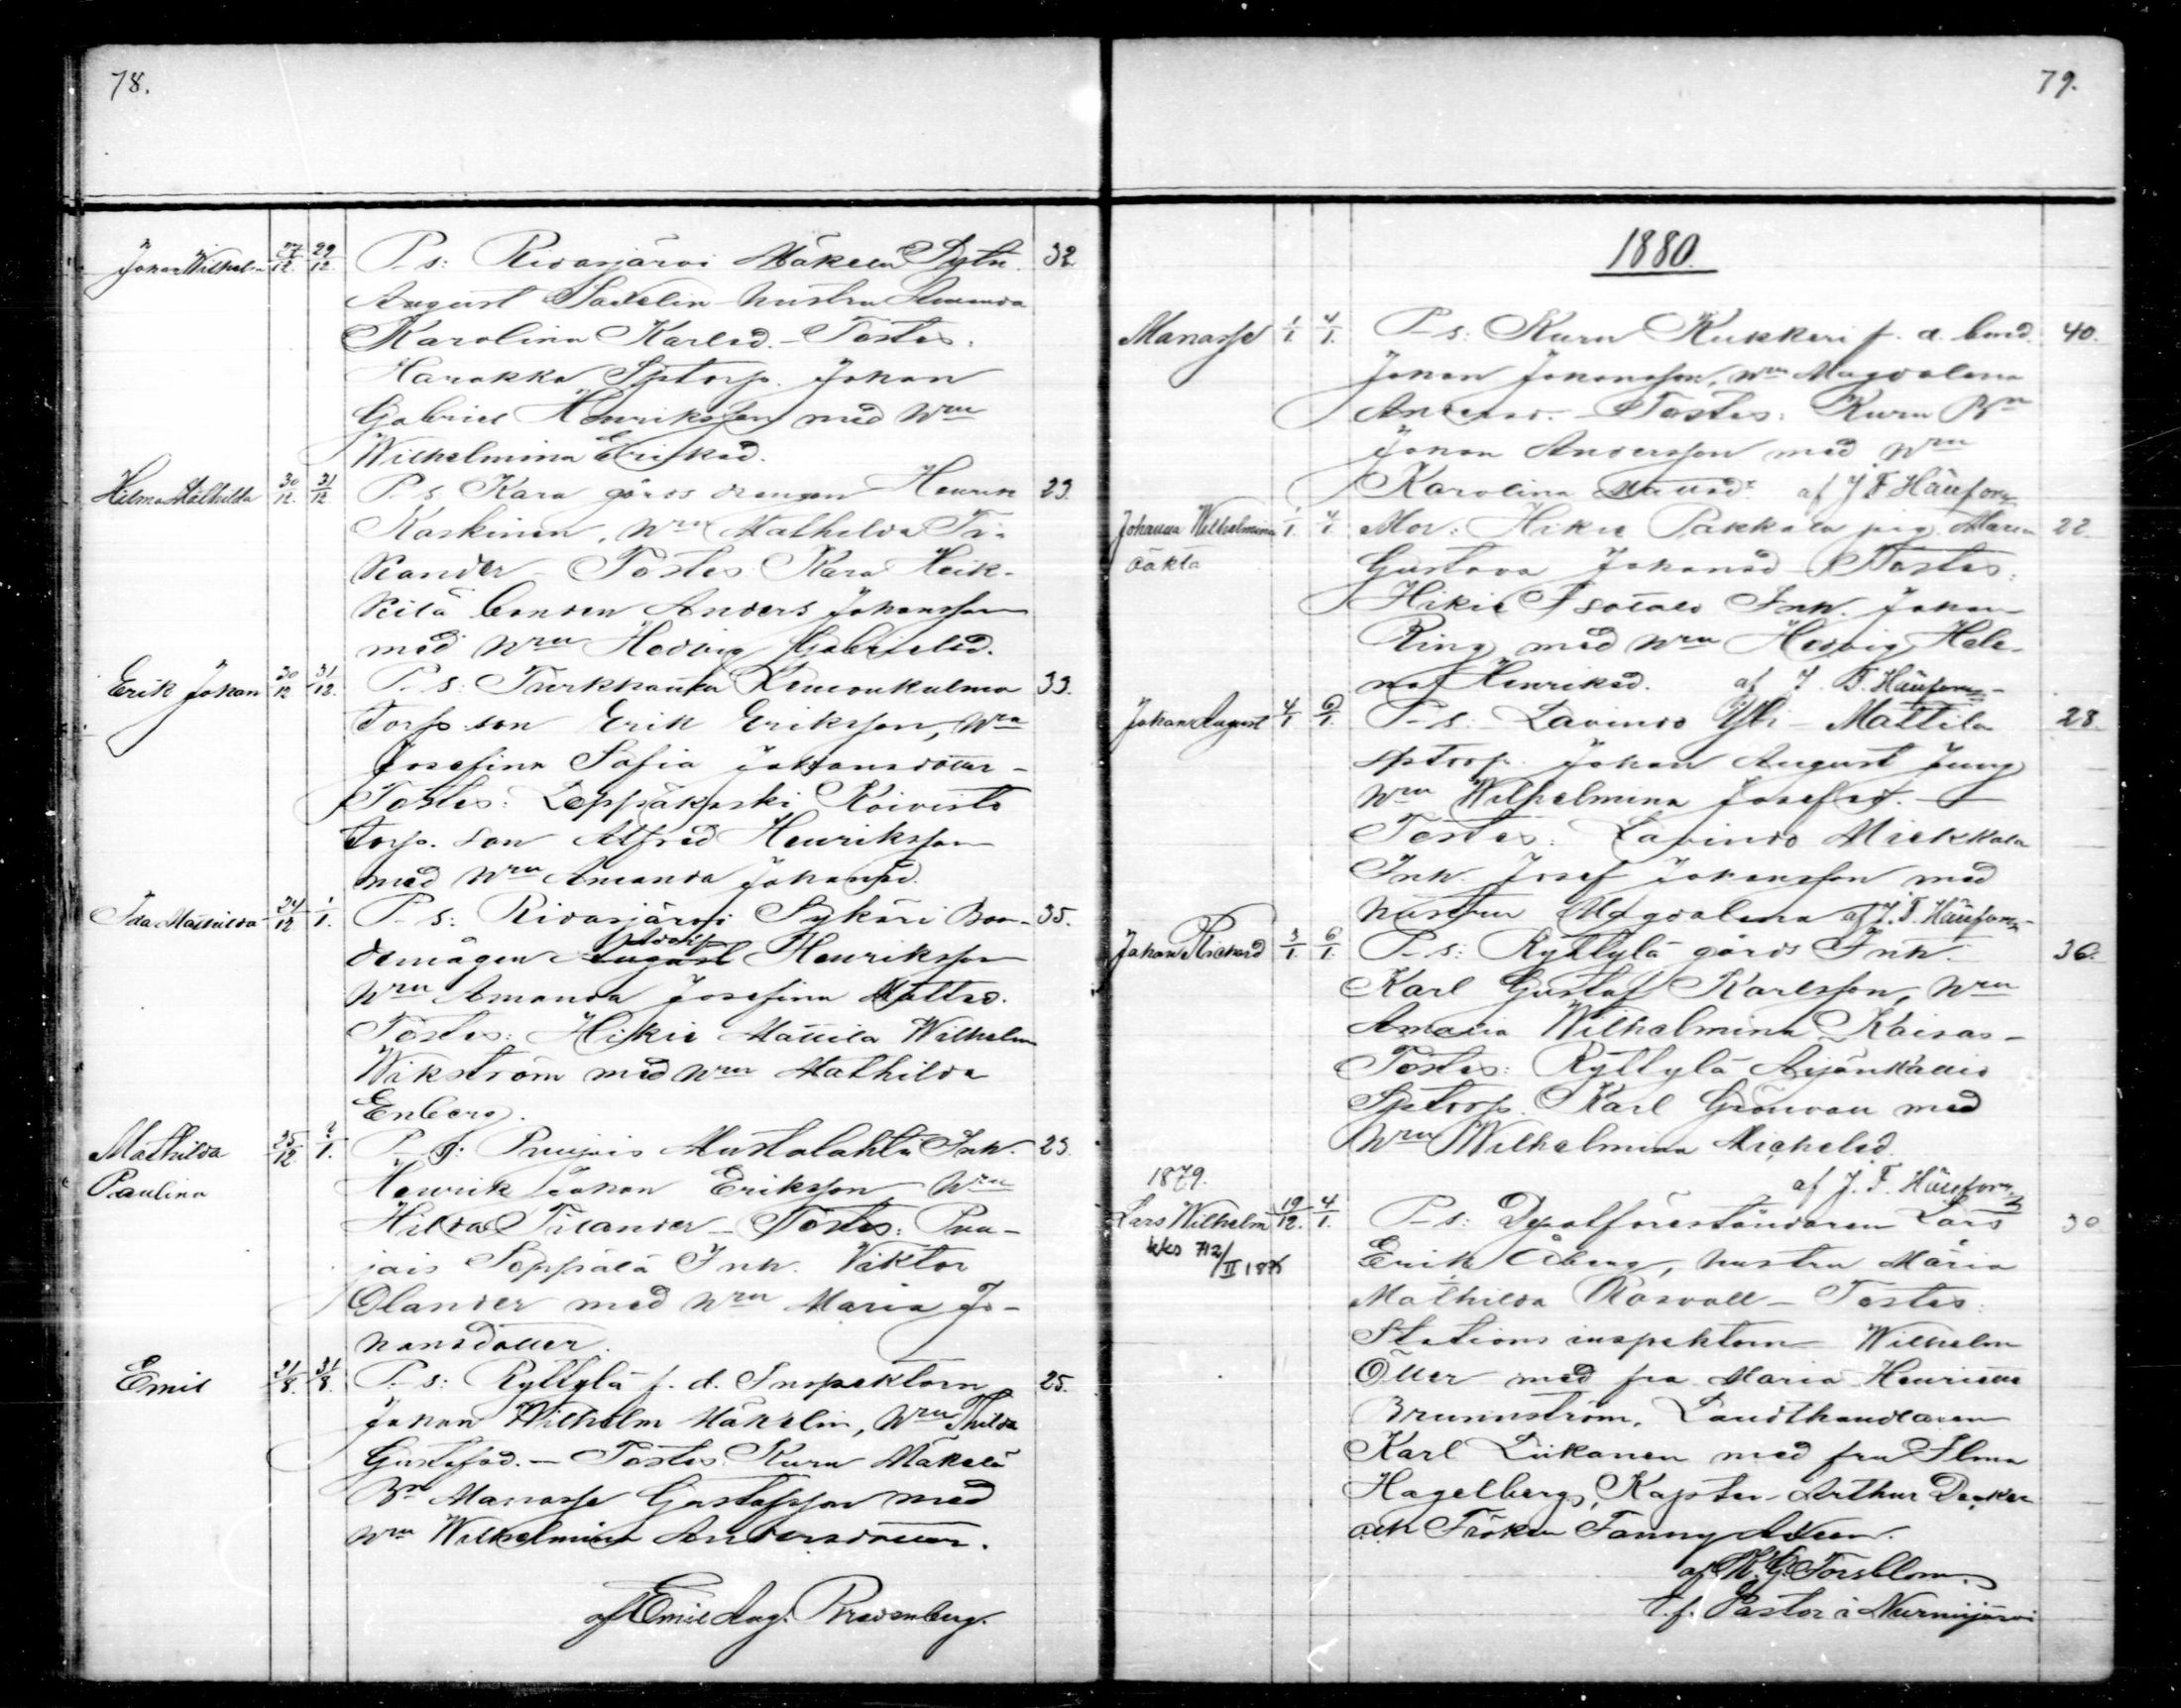 78.
Johan Wilhelm 27/12. 29/12. P. s: Ridasjärvi Mäkelä Dytn. 32.
August Sadelin hustru Amanda
Karolina Karlsd. - Testes:
Harakka Sptorp. Johan
Gabriel Henriksson med hru
Wilhelmina Eriksd.
Hilma Mathilda 30/12. 31/12. P. s. Kara gårds drängen Henrik 29.
Koskinen, hru Mathilda Ti-
kander - Testes Kara Heik-
kilä bonden Anders Johansson
med hru Hedvig Gabrielsd.
Erik Johan 30/12 31/12. P. s: Turkhauta Lemonkulma 33.
torp. son Erik Eriksson, hru
Josefina Sofia Johansdotter -
Testes: Leppäkoski Koivisto
torp. son Alfred Henriksson
med hru Amanda Johansd.
Ida Mathilda 24/12 1/1. P. s: Ridasjärvi Sykäri Bon- 35.
demågen August Adolf Henriksson
hru Amanda Josefina Mattsd.
Testes: Hikiä Mattila Wilhelm
Wikström med hru Mathilda
Enberg.
Mathilda 25/12. 2/1. P. s: Puujais Mustalahti Inh. 23.
Paulina Henrik Johan Eriksson hru
Hilda Tilander - Testes: Puu-
jais Seppälä Inh. Viktor
Olander med hru Maria Jo-
hansdotter.
Emil 21/8. 31/8. P. s: Ryttylä f. d. Inspektorn 25.
Johan Wilhelm Mäkelin, hru Thilda
Gustafsd. - Testes Kuru Mäkelä
Bn Manasse Gustafsson med
hru Wilhelmina Andersdotter.
af Emil Aug. Bredenberg.
79.
1880.
Manasse 1/1. 4/1. P. s: Kuru Kukkeri f. d. bond. 40.
Johan Johansson, hru Magdalena
Andersd. - Testes: Kuru Bn
Johan Andersson med hru
Karolina af J F Hänfors
Johanna Wilhelmina 1/1. 4/1. Mor: Hikiä Pakkala pig. Maria 22.
oäkta Gustava Johansd Testes:
Hikiä Isotalo Inh. Johan
Ring med hru Hedvig Hele-
na Henriksd. af J. F. Hänfors
Johan August 4/1 6/1. P. s: Lavinto Yli-Mattila 28.
sptorp. Johan August Jung
hru Wilhelmina Josefsd. -
Testes: Lavinto Miekkala
Inh. Josef Johansson med
hustru Magdalena af J. F. Hänfors
Johan Richard 3/1. 6/1. P. s: Ryttylä gårds Inh. 36.
Karl Gustaf Karlsson, hru
Amalia Wilhelmina Kaisas -
Testes: Ryttylä Aijänkallio
Sptorp. Karl Grönvall med
hru Wilhelmina Michelsd.
af J. F. Hänfors
1879.
Lars Wilhelm 19/12. 4/1. P. s: Depotföreståndaren Lars 30
kks 712/II 1876 Erik Åberg, hustru Maria
Mathilda Rosvall - Testes:
Stations inspektorn Wilhelm
Öller med fru Maria Henriette
Brunnström, Landthandlaren
Karl Liikanen med fru Ilma
Hagelberg, Kapten Arthur Decker
och Fröken Fanny
af K. G. Forsblom.
t. f. Pastor i Nurmijärvi